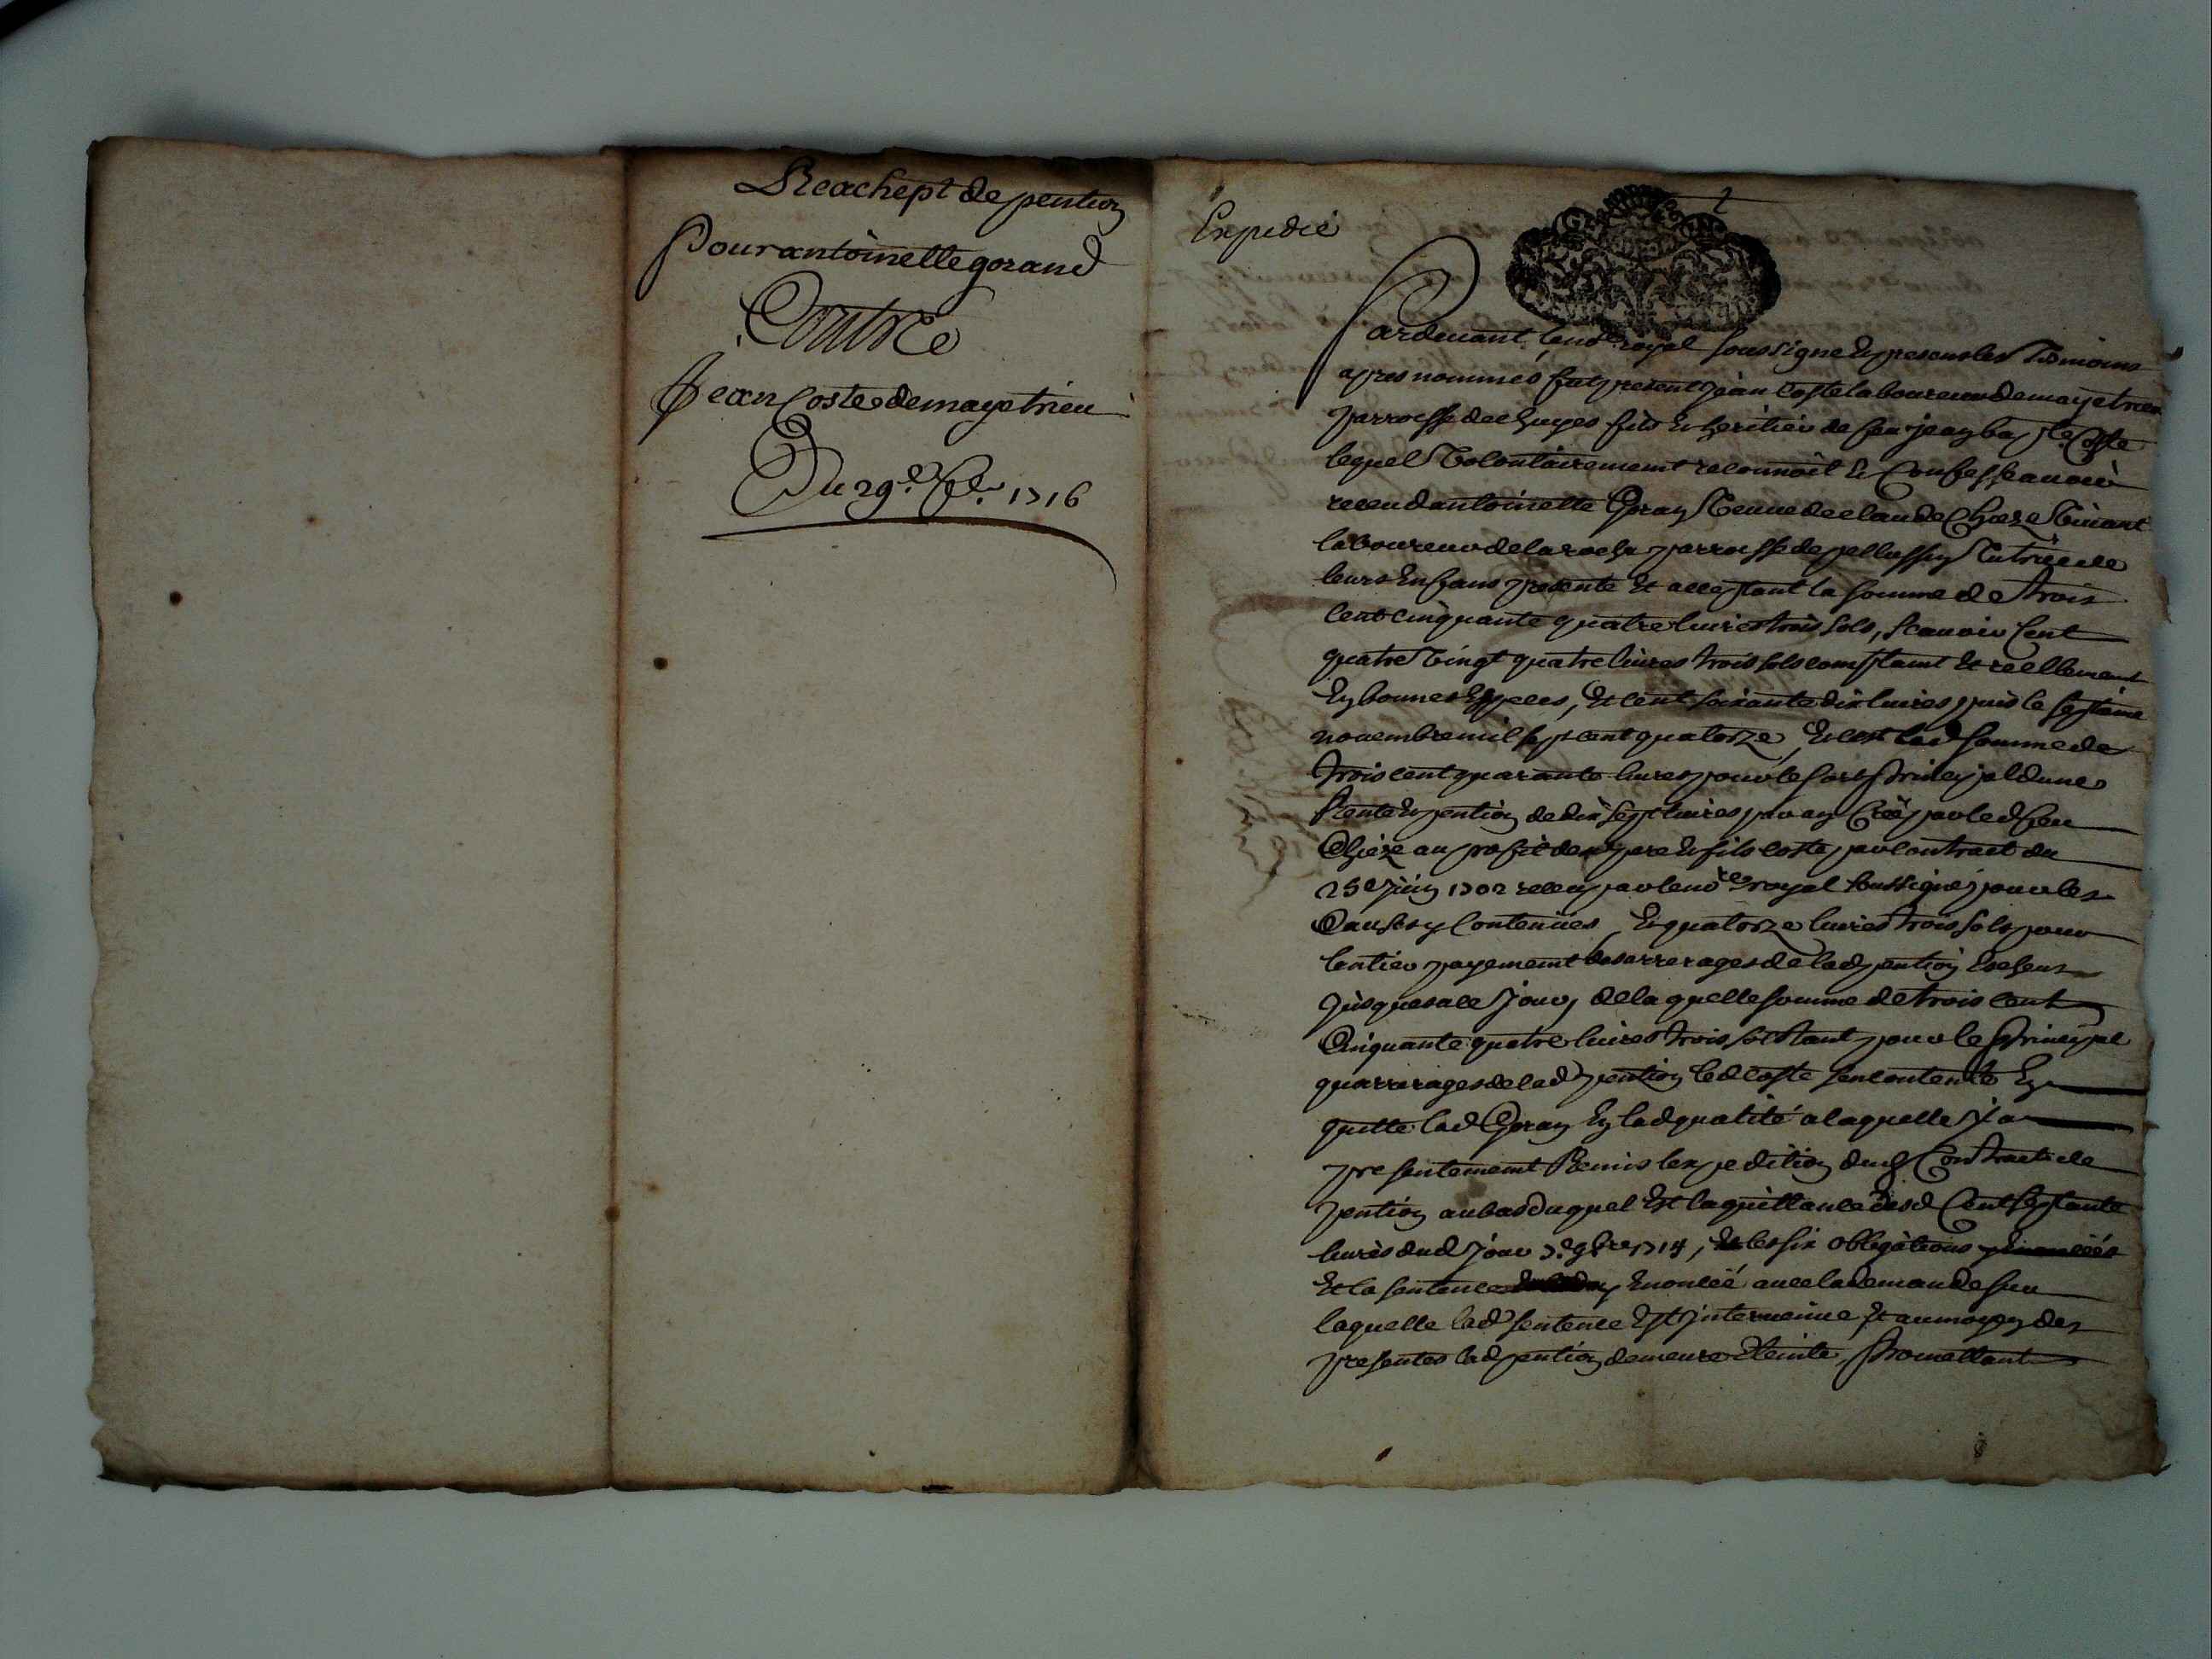 Reachept de pention
Pour antoinette gorand
Contre
Jean Coste de mayetrieu
Du 29e 1716
Expedié
Pardevant le no.re royal soussigné et presens les Temoins
apres nommés fut present jean Coste laboureur de mayetrieu
parroisse de fils et heritier de feu jean bap.te Coste
lequel Volontairement reconnoit et Confesse avoir
receu dantoinette Goran Veuve de claude Vivant
laboureur de la roche parroisse de pellussin Tutrice de
leurs Enfans presente Et acceptant la somme de Trois
Cent cinquante quatre livres trois sols, scavoir Cent
quatre Vingt quatre livres trois sols comptant et reellement
En bonnes Especes, Et cent soixante dix livres puis le septieme
novembre mil sept cent quatorze, Et est lad somme de
Trois cent quarante livres pour le sort Principal dune
Rente et pention de dix sept livres par an Créé par led feu
au profit des pere et fils coste par contract du
25e juin 1702 receu par le no.re royal soussigné pour les
Causes y Contenües, Et quatorze livres trois sols pour
lentier payement des arrerages de lad pention Escheus
jusques a ce jour, de la quelle somme de trois cent
Cinquante quatre livres trois sols tant pour le Principal
quarrerages de lad pention led Coste sen contente En
quitte lad Goran En lad qualité a laquelle il a
presentement Remis lexpedition dud Contract de
pention au bas duquel Est la quittance desd Cent septante
livres dud jour 7e 9bre 1714, et les six obligations
Et la sentence Enoncéé avec la demande sur
laquelle lad sentence Est intervenüe Et au moyen des
presentes lad pention demeure Eteinte, Promettant